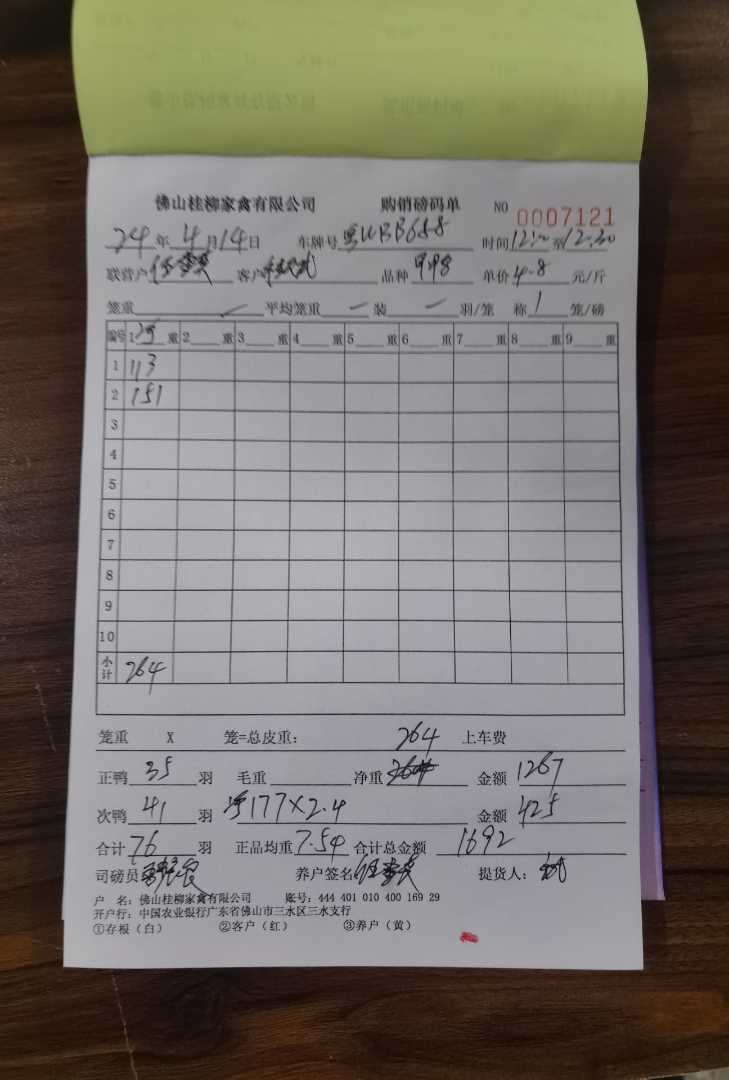 佛山桂柳家禽有限公司 购销磅码单 NO 0007121
24年4月14日 车牌号 WBB658 时间 至12.30
联营户 客户 品种 998 单价4.8元/斤
笼重 平均笼重 装 羽/笼 称1笼/磅
编号 1净重 2重 3重 4重 5重 6重 7重 8重 9重
1 113
2 151
3
4
5
6
7
8
9
10
小计 264
笼重 X 笼=总皮重: 264 上车费
正鸭35羽 毛重 净重 金额1267
次鸭41羽 净177×2.4 金额425
合计76羽 正品均重7.54 合计总金额1692
司磅员 养户签名 提货人:
户 名:佛山桂柳家禽有限公司 账号:444 401 010 400 169 29
开户行:中国农业银行广东省佛山市三水区三水支行
①存根(白) ②客户(红) ③养户(黄)